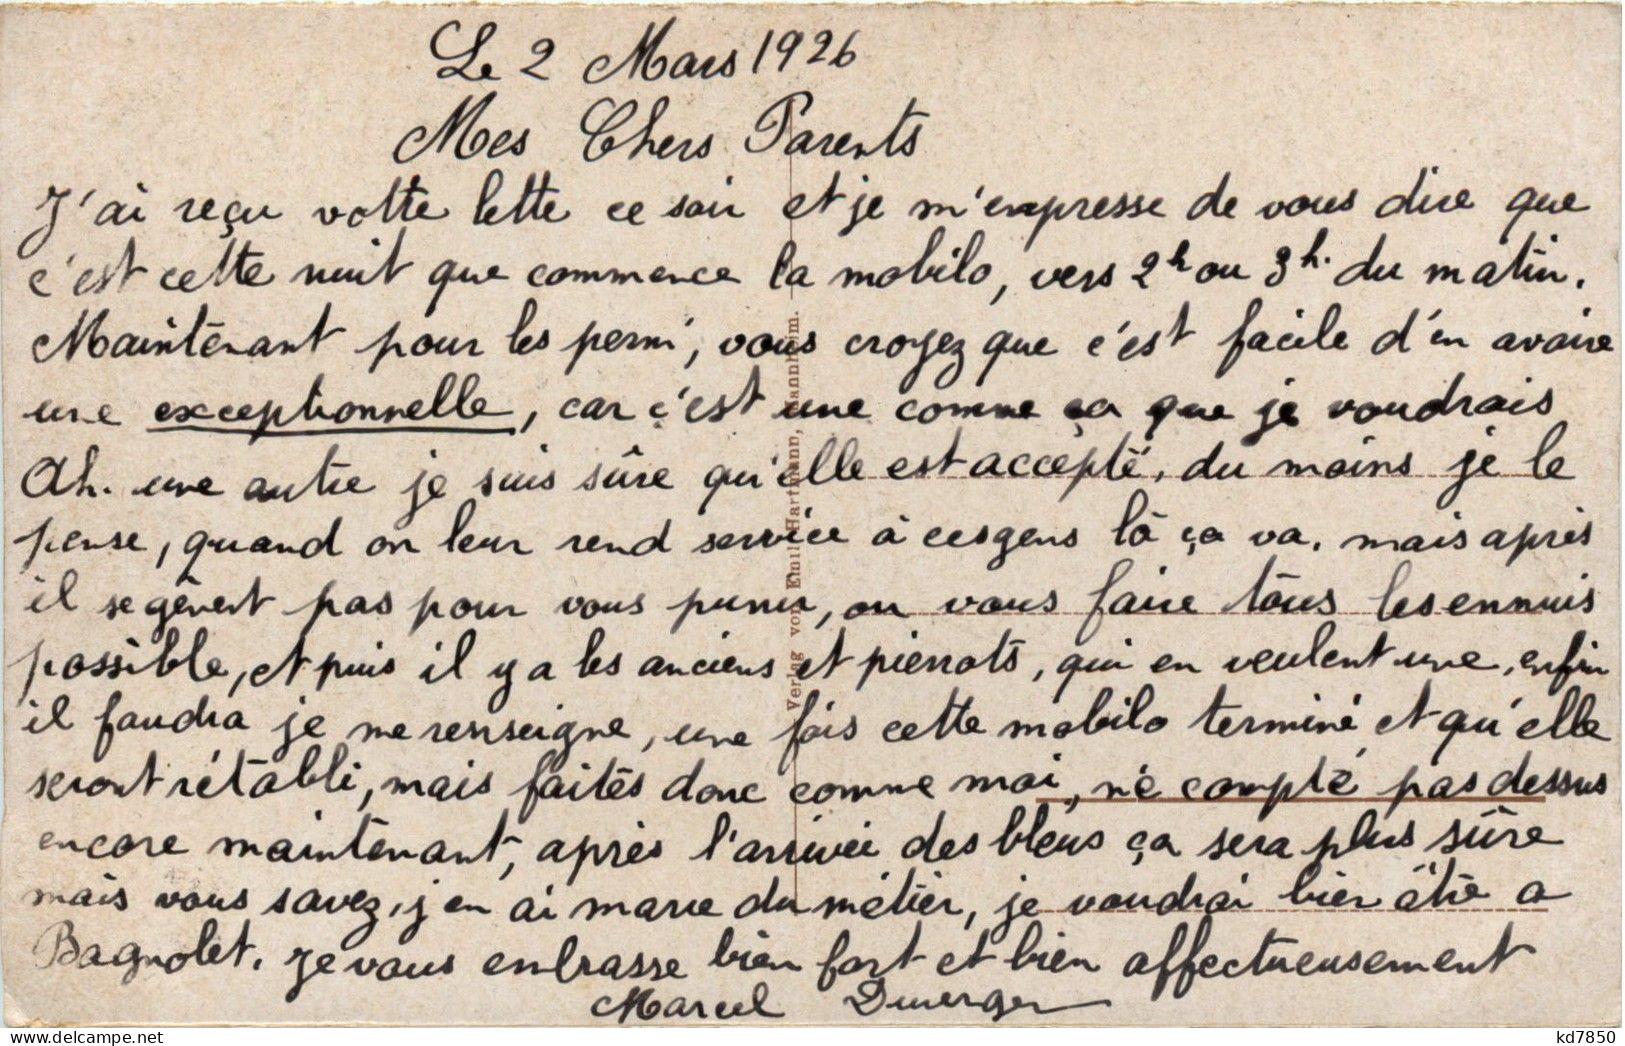 Le 2 Mars 1926
Mes Chers Parents
J'ai reçu votte lette ce soir et je m'enpresse de vous dire que
c'est cette nuit que commence la mobilo, vers 2h ou 3h. du matin.
Maintenant pour les permi, vous croyez que c'est facile d'en avoire
une exceptionnelle, car c'est une comme ça que je voudrais
Ah. une autre je suis sûre qu'elle est accepté, du moins je le
pense, quand on leur rend service à ces gens là ça va. mais après
il se gênent pas pour vous punir, ou vous faire tous les ennuis
possible, et puis il y a les anciens et pierrots, qui en veulent une, enfin
il faudra je me renseigne, une fois cette mobilo terminé et qu'elle
seront rétabli, mais faites donc comme moi, n'e compté pas dessus
encore maintenant, après l'arrivée des bleus ça sera plus sûre
mais vous savez, j'en ai marre du métier, je voudrai bien être a
Bagnolet. Je vous enbrasse bien fort et bien affectueusement
Marcel
Verlag von Emil Hartmann, Mannheim.
kd7850